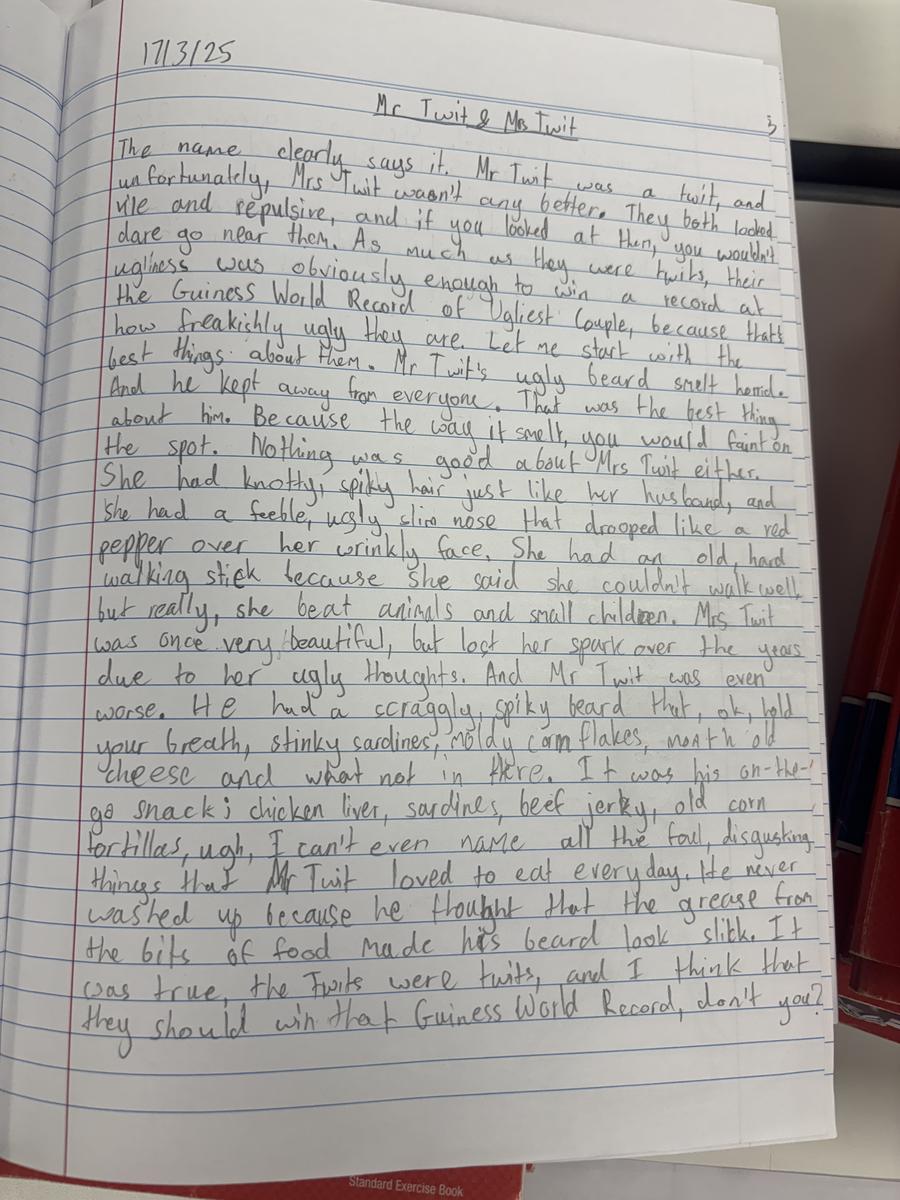 17/3/25
Mr Twit & Mrs Twit
The name clearly says it. Mr Twit was a twit, and
unfortunately, Mrs Twit wasn't any better. They both looked
vile and repulsive, and if you looked at them, you wouldn't
dare go near them. As much as they were twits, their
ugliness was obviously enough to win a record at
the Guiness World Record of Ugliest Couple, because that's
how freakishly ugly they are. Let me start with the
best things about them. Mr Twit's ugly beard smelt horrid.
And he kept away from everyone. That was the best thing
about him. Because the way it smelt, you would faint on
the spot. Nothing was good about Mrs Twit either.
She had knotty, spiky hair just like her husband, and
she had a feeble, ugly slim nose that drooped like a red
pepper over her wrinkly face. She had an old, hard
walking stick because she said she couldn't walk well,
but really, she beat animals and small children. Mrs Twit
was once very beautiful, but lost her spark over the years
due to her ugly thoughts. And Mr Twit was even
worse. He had a scraggly, spiky beard that, ok, hold
your breath, stinky sardines, moldy corn flakes, month old
cheese and what not in there. It was his on-the-
go snack; chicken liver, sardines, beef jerky, old corn
tortillas, ugh, I can't even name all the foul, disgusting
things that Mr Twit loved to eat everyday. He never
washed up because he thought that the grease from
the bits of food made his beard look slick. It
was true, the Twits were twits, and I think that
they should win that Guiness World Record, don't you?
Standard Exercise Book